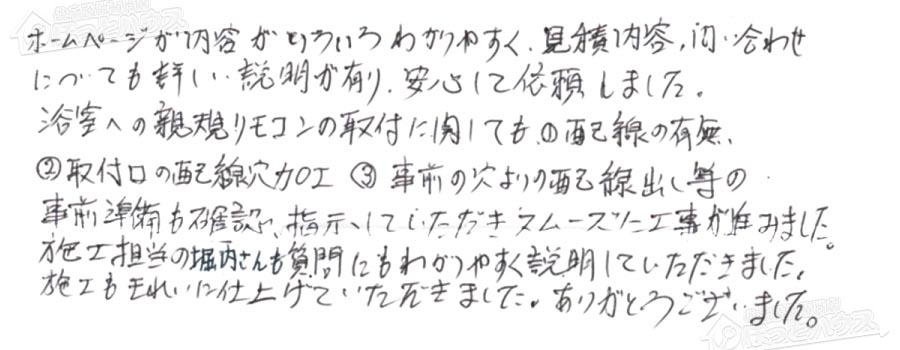 ホームページが内容がいろいろわかりやすく、見積内容、問い合わせ
についても詳しい説明が有り、安心して依頼しました。
浴室への親規リモコンの取付に関しても、①配線の有無、
②取付口の配線穴加工 ③事前の穴よりの配線出し等の
事前準備も確認、指示していただきスムーズに工事が進みました。
施工担当の堀内さんも質問にもわかりやすく説明していただきました。
施工もきれいに仕上げていただきました。ありがとうございました。
ほっとハウス
ほっとハウス